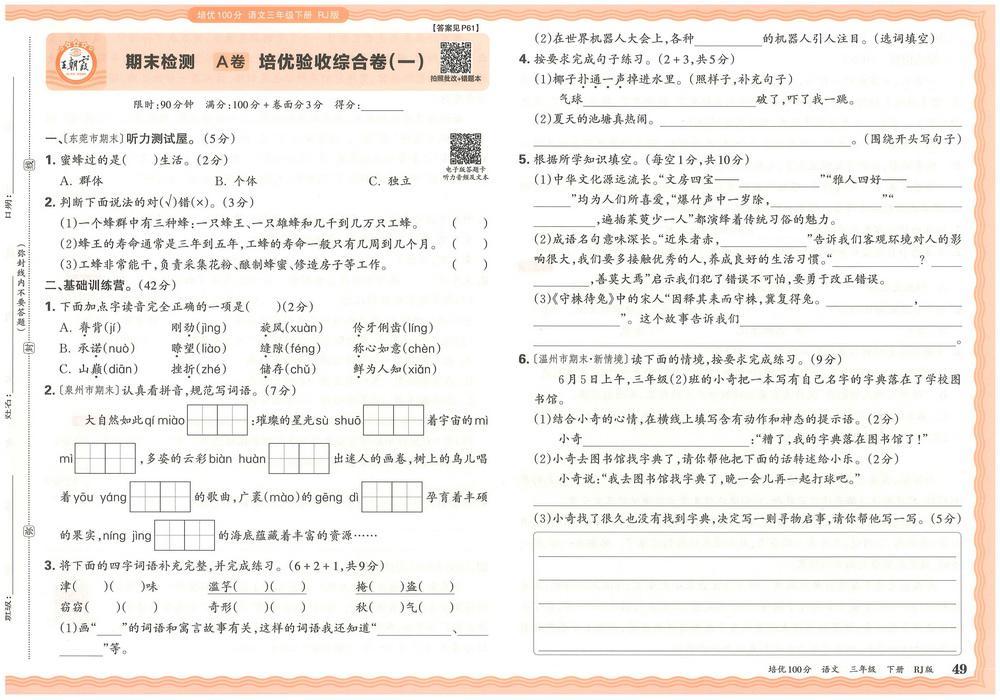 培优100分 语文三年级下册 RJ版
【答案见P61】
王朝霞
期末检测 A卷 培优验收综合卷(一)
拍照批改+错题本
限时:90分钟 满分:100分+卷面分3分 得分:______
一、〔东莞市期末〕听力测试屋。(5分)
电子版答题卡
听力音频及文本
1. 蜜蜂过的是( )生活。(2分)
A. 群体 B. 个体 C. 独立
2. 判断下面说法的对(√)错(×)。(3分)
(1)一个蜂群中有三种蜂:一只蜂王、一只雄蜂和几千到几万只工蜂。 ( )
(2)蜂王的寿命通常是三年到五年,工蜂的寿命一般只有几周到几个月。 ( )
(3)工蜂非常能干,负责采集花粉、酿制蜂蜜、修造房子等工作。 ( )
二、基础训练营。(42分)
1. 下面加点字读音完全正确的一项是( )(2分)
A. 脊背(jí) 刚劲(jìng) 旋风(xuàn) 伶牙俐齿(líng)
B. 承诺(nuò) 瞭望(liào) 缝隙(féng) 称心如意(chèn)
C. 山巅(diān) 挫折(zhé) 储存(chǔ) 鲜为人知(xiǎn)
2. 〔泉州市期末〕认真看拼音,规范写词语。(7分)
大自然如此qí miào ;璀璨的星光sù shuō 着宇宙的mì
mì ,多姿的云彩biàn huàn 出迷人的画卷,树上的鸟儿唱
着yōu yáng 的歌曲,广袤(mào)的gēng dì 孕育着丰硕
的果实,níng jìng 的海底蕴藏着丰富的资源……
3. 将下面的四字词语补充完整,并完成练习。(6+2+1,共9分)
津( )( )味 滥竽( )( ) 掩( )盗( )
窃窃( )( ) 奇形( )( ) 秋( )气( )
(1)画“____”的词语和寓言故事有关,这样的词语我还知道“__________、____
______”等。
(2)在世界机器人大会上,各种__________的机器人引人注目。(选词填空)
4. 按要求完成句子练习。(2+3,共5分)
(1)椰子扑通一声掉进水里。(照样子,补充句子)
气球__________________________破了,吓了我一跳。
(2)夏天的池塘真热闹。____________________________________________
______________________________________________。(围绕开头写句子)
5. 根据所学知识填空。(每空1分,共10分)
(1)中华文化源远流长。“文房四宝——____________”“雅人四好——________
______”均为人们所喜爱,“爆竹声中一岁除,________________”“__________
__________,遍插茱萸少一人”都演绎着传统习俗的魅力。
(2)成语名句意味深长。“近朱者赤,____________”告诉我们客观环境对人的影
响很大,我们要多接触优秀的人,养成良好的生活习惯。“____________?______
__________,善莫大焉”启示我们犯了错误不可怕,要勇于改正错误。
(3)《守株待兔》中的宋人“因释其耒而守株,冀复得兔。____________,________
____________”。这个故事告诉我们________________________________
____________________________________________________________。
6. 〔温州市期末·新情境〕读下面的情境,按要求完成练习。(9分)
6月5日上午,三年级(2)班的小奇把一本写有自己名字的字典落在了学校图
书馆。
(1)结合小奇的心情,在横线上填写含有动作和神态的提示语。(2分)
小奇________________________:“糟了,我的字典落在图书馆了!”
(2)小奇去图书馆找字典了,请你帮他把下面的话转述给小乐。(2分)
小奇说:“我去图书馆找字典了,晚一会儿再一起打球吧。”
____________________________________________________________
(3)小奇找了很久也没有找到字典,决定写一则寻物启事,请你帮他写一写。(5分)
培优100分 语文 三年级 下册 RJ版 49
日期:
姓名:
班级:
(弥封线内不要答题)
线
封
弥